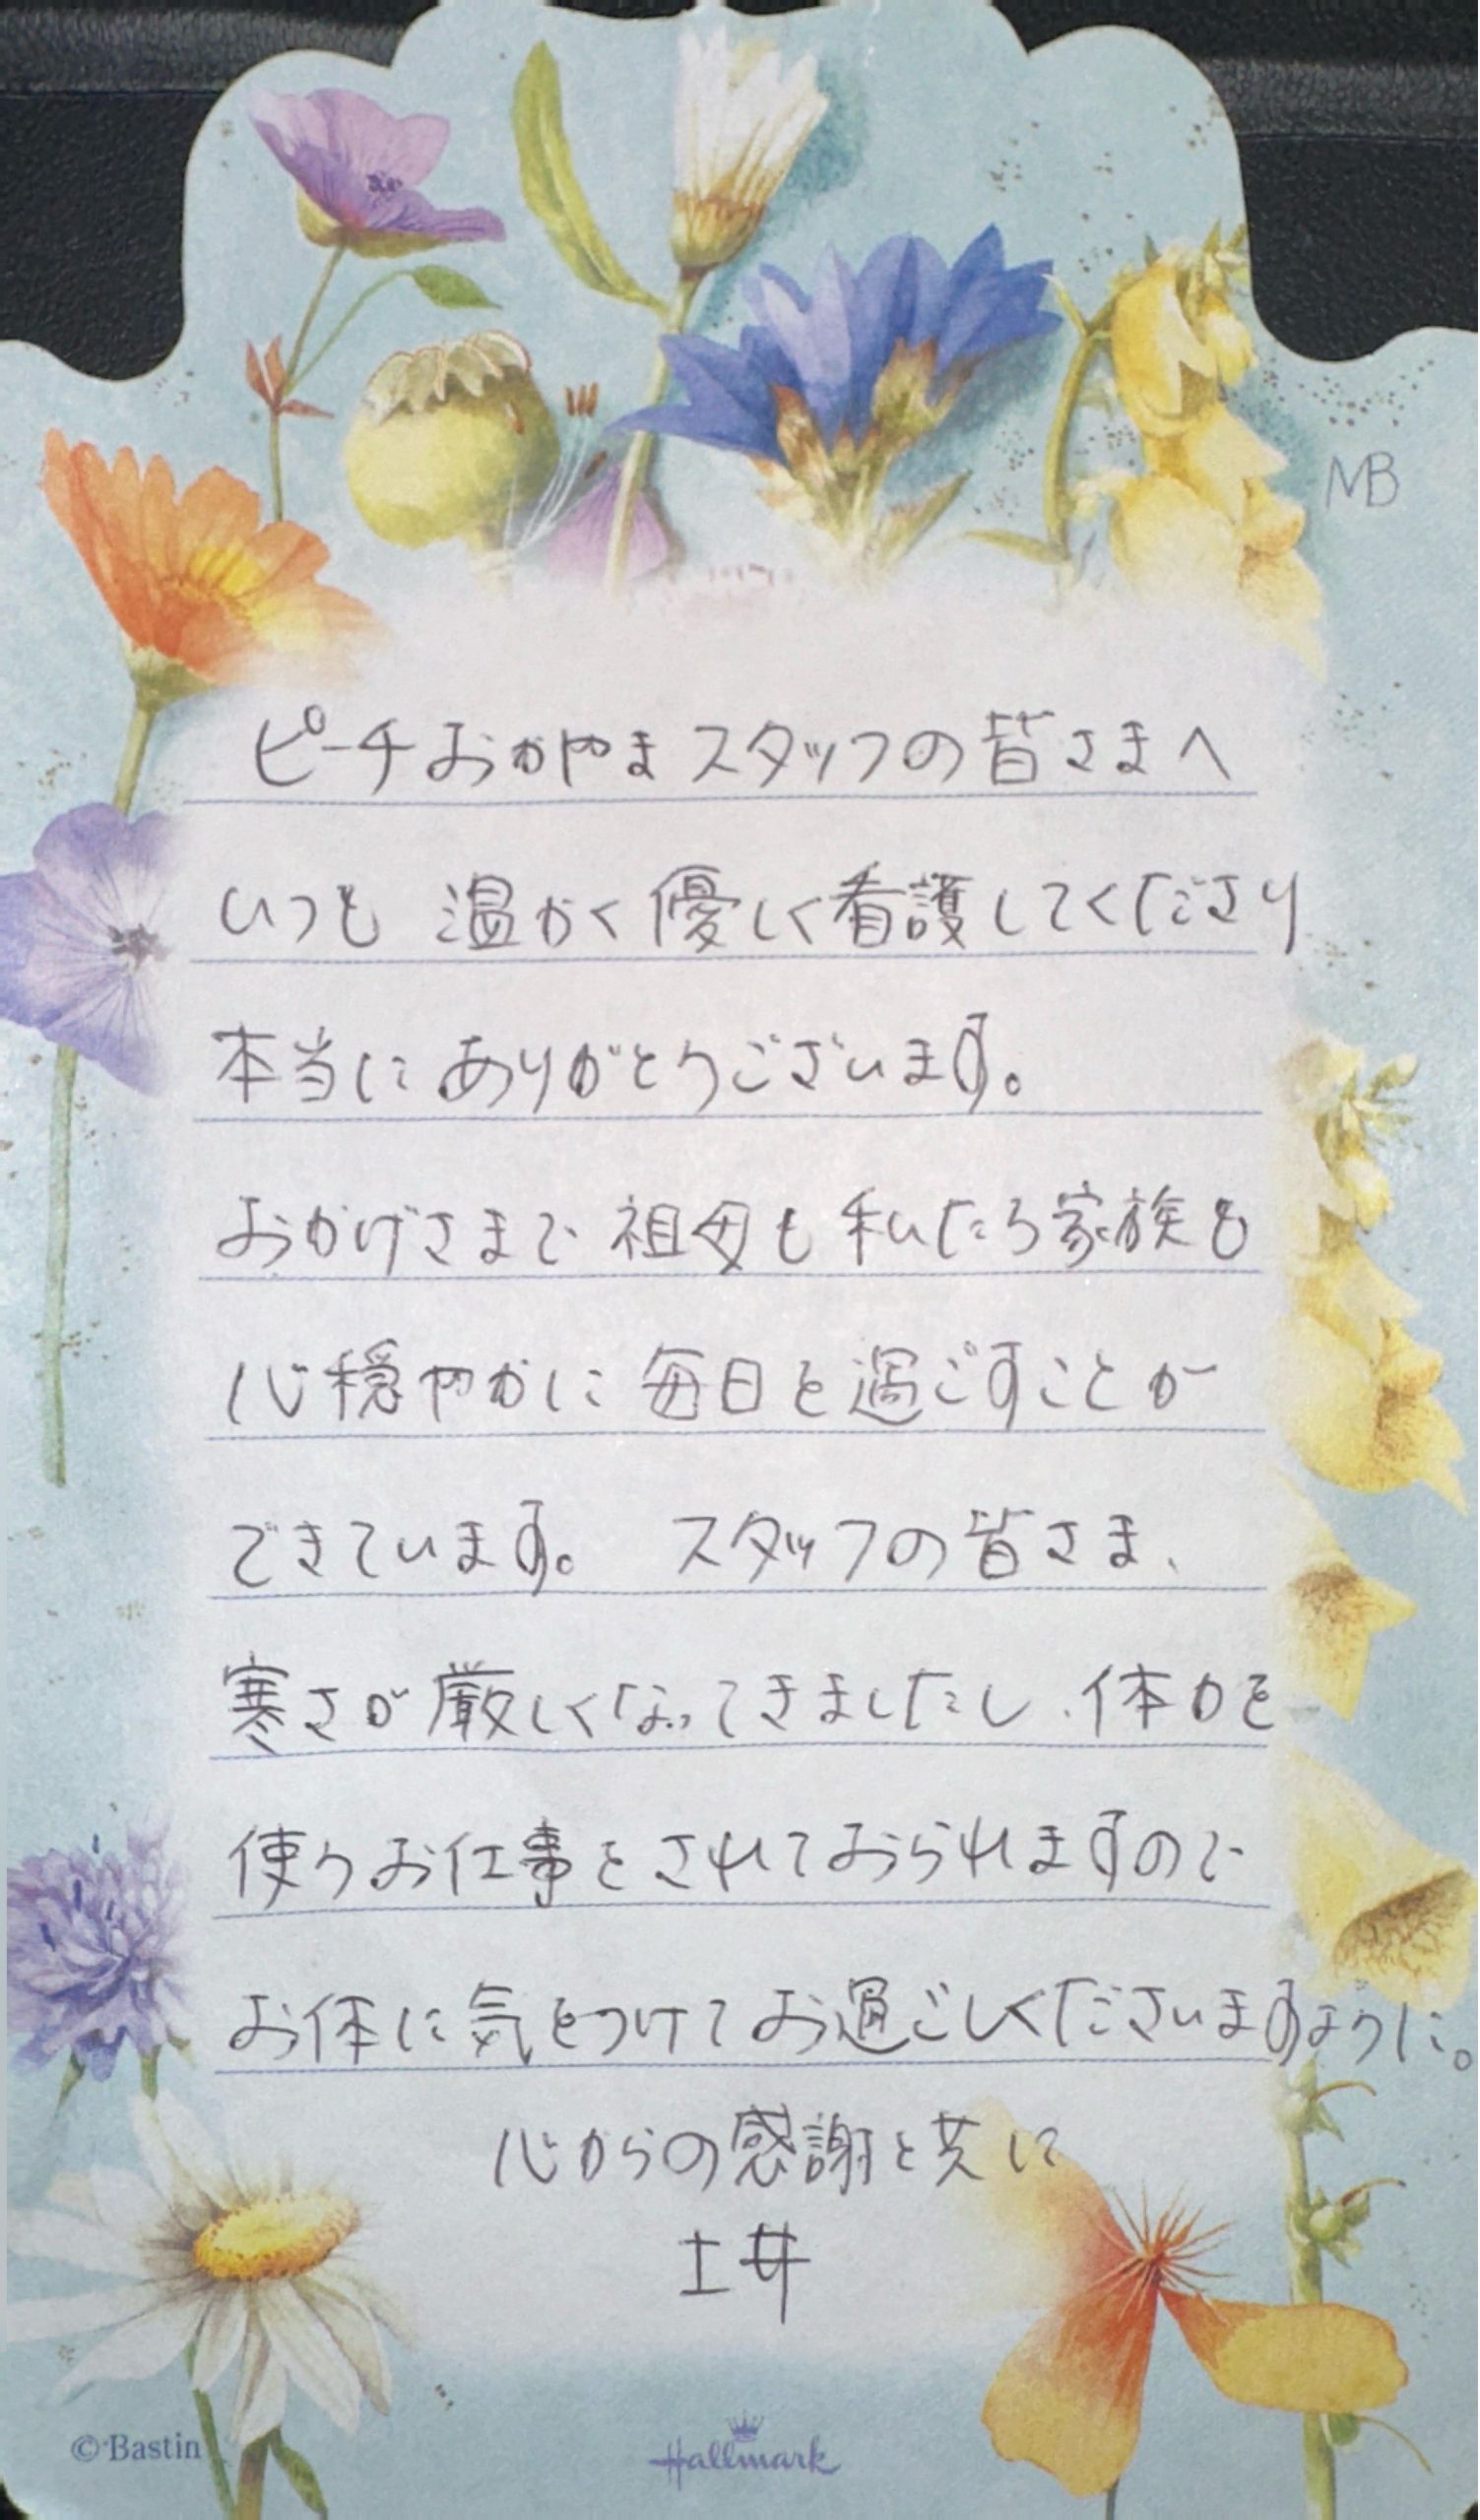 MB
ピーチおかやまスタッフの皆さまへ
いつも 温かく優しく看護してくださり
本当にありがとうございます。
おかげさまで 祖母も 私たち家族も
心穏やかに 毎日を過ごすことが
できています。 スタッフの皆さま、
寒さが厳しくなってきましたし、体力を
使うお仕事をされておられますので
お体に気をつけてお過ごしくださいますように。
心からの感謝と共に
土井
©Bastin
Hallmark